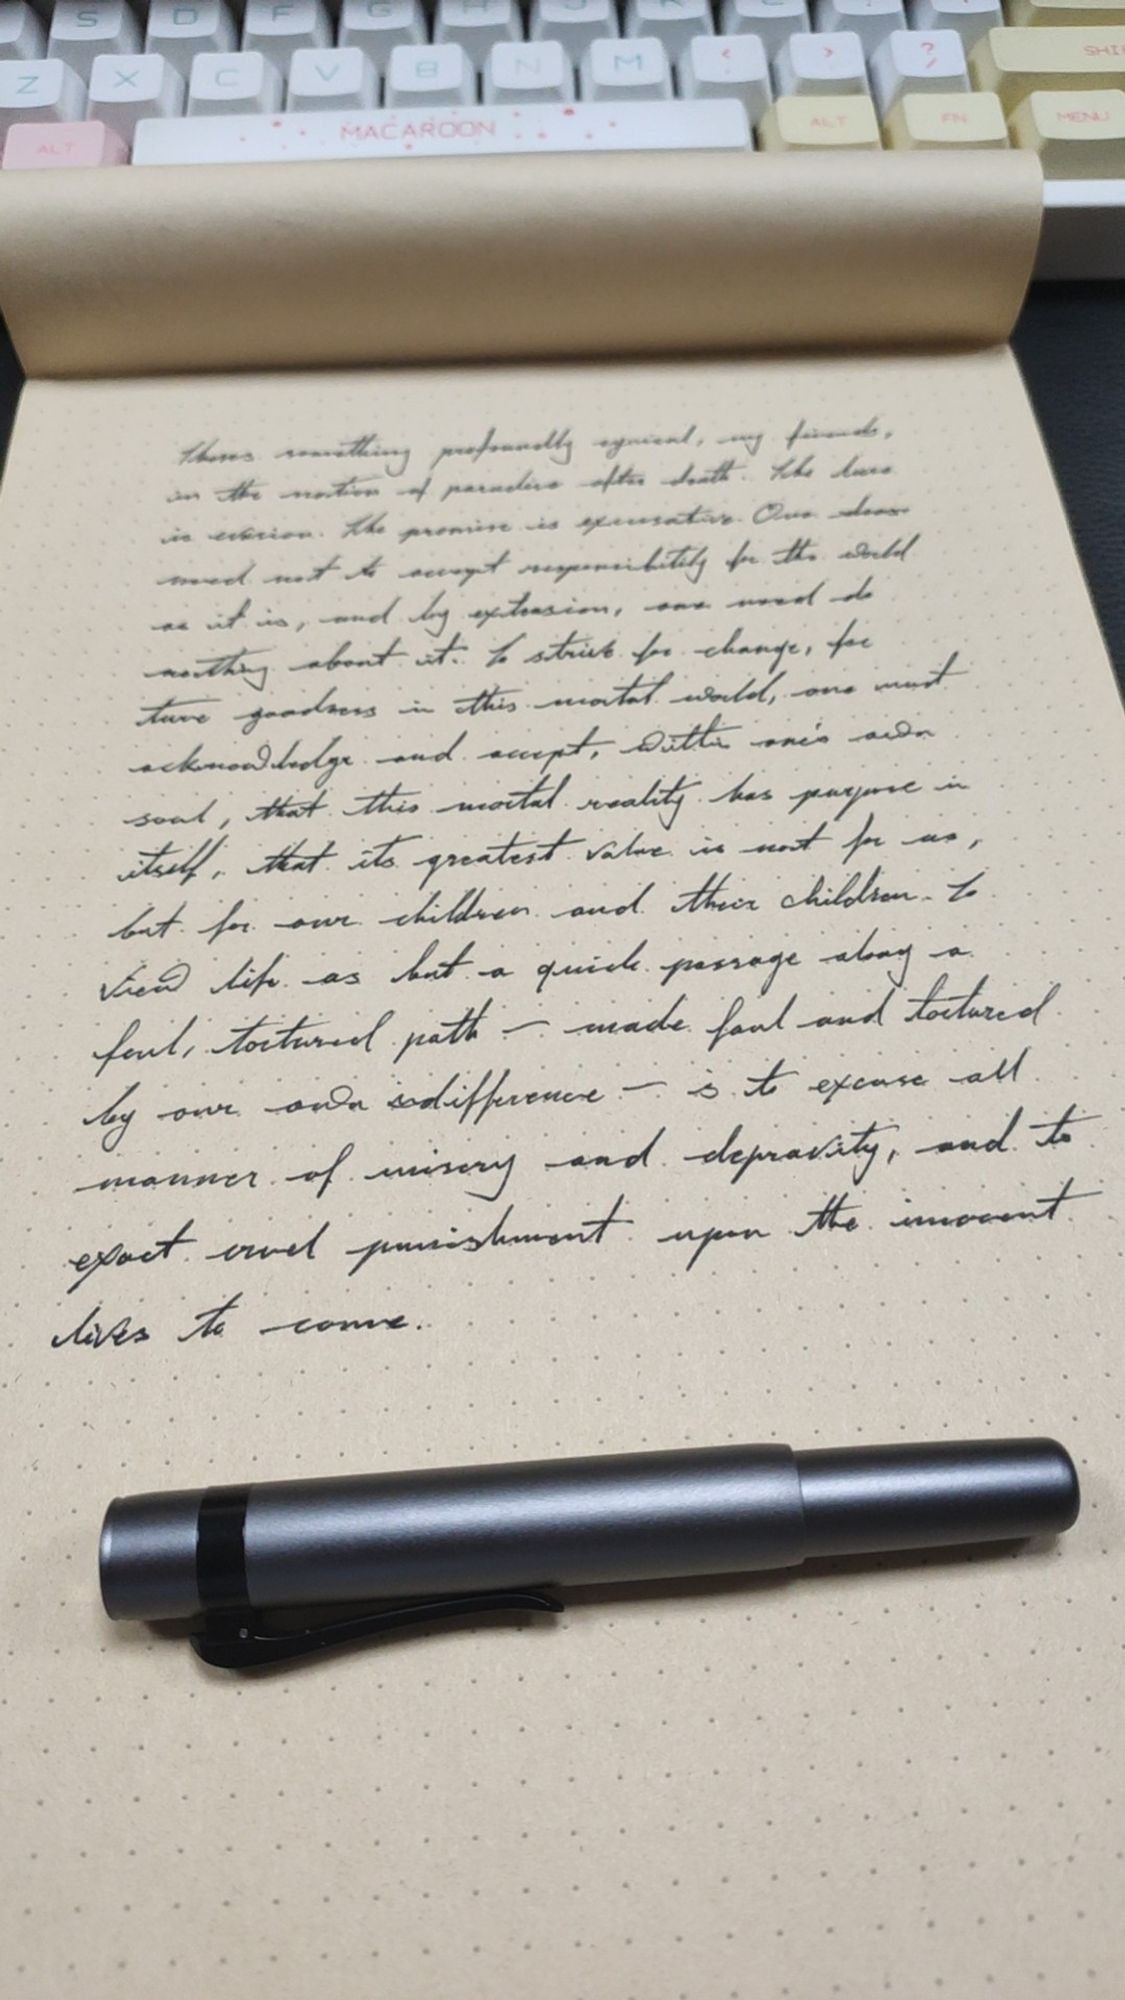 S D F G H J K L
Z X C V B N M < > ? SHIFT
ALT MACAROON ALT FN MENU
Theres something profoundly cynical, my friends,
in the notion of paradise after death. The lure
is evasion. The promise is excusative. One does
need not to accept responsibility for the world
as it is, and by extension, one need do
nothing about it. To strive for change, for
ture goodness in this mortal world, one must
acknowledge and accept, within one's own
soul, that this mortal reality has purpose in
itself, that its greatest value is not for us,
but for our children and their children. To
view life as but a quick passage along a
foul, tortured path – made foul and tortured
by our own indifference – is to excuse all
manner of misery and depravity, and to
exact cruel punishment upon the innocent
lives to come.